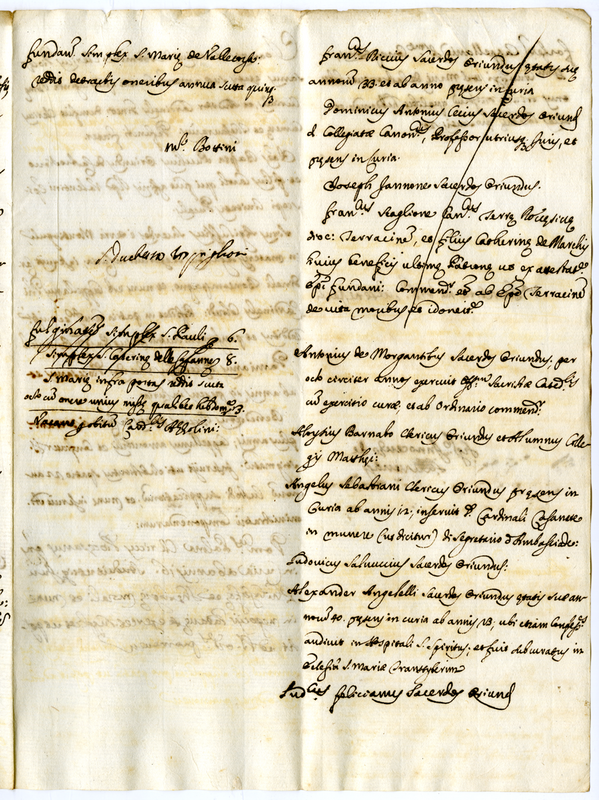 fundan. Simplex S. Mariæ de Vallecorsa:
reditus detractis oneribus annua scuta
Bottini
fulginaten. Simplex S. Pauli 6.
Simplex S. Catherinæ delle 8.
S. Mariæ infra portas redditus scuta
octo cu onere unius missæ qualibet hebdom. 3
Nacane p obitum Azzolini:
Fran.cus Riccius Sacerdos Oriundus ætatis suæ
annorum 33. et ab anno præsens in Curia
Dominicus Antonius Ceccus Sacerdos Oriund
et Collegiatæ Canon.cus, Professor utriusq. Iuris, et
præsens in Curia.
Joseph Iannone Sacerdos Oriundus.
Fran.cus Staglione Can.cus Terræ
dioc: Terracinen, et filius Catherinæ de Marchis
huius beneficii ultimæ Patronæ ut ex
Epi fundani: Commend. et ab Epo Terracinen
de vita moribus et idoneit.e
Antonius de Morgantibus Sacerdos Oriundus. per
octo circiter annos exercuit Off.um Sacristæ Cathd.lis
cu exercitio curæ, et ab Ordinario commend.r
Aloysius Barnabo Clericus Oriundus et Alumnus Colle-
gij Matthæi:
Angelus Sebastiani Clericus Oriundus præsens in
Curia ab annis 12; inservit D. Cardinali Casanate
in munere (ut dicitur) di Segretario d'Ambasciate:
Ludovicus Saluuccius Sacerdos Oriundus:
Alexander Angelelli Sacerdos Oriundus ætatis suæ an-
norum 40. præsens in curia ab annis 18, ubi etiam Confess.es
audivit in Hospitali S. Spiritus, et fuit deburatus in
Ecclesia S. Mariæ Transtyberim
Lud.cus Felicianus Sacerdos Oriund